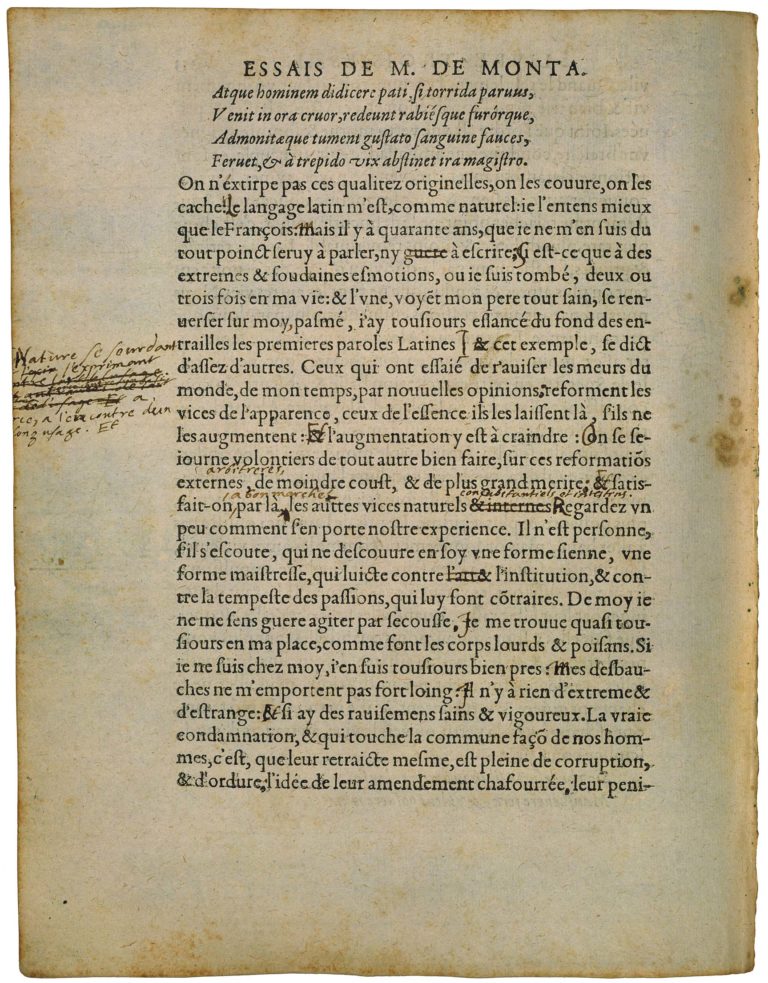 ESSAIS DE M. DE MONTA.
Atque hominem didicere pati, si torrida paruus,
Venit in ora cruor, redeunt rabiésque furórque,
Admonitæque tument gustato sanguine fauces,
Feruet, & à trepido vix abstinet ira magistro.
On n'éxtirpe pas ces qualitez originelles, on les couure, on les
cache: Le langage latin m'est, comme naturel: ie l'entens mieux
que le François: Mais il y à quarante ans, que ie ne m'en suis du
tout poinct seruy à parler, ny guere à escrire: Si est-ce que à des
extremes & soudaines esmotions, ou ie suis tombé, deux ou
trois fois en ma vie: & l'vne, voyẽt mon pere tout sain, se ren-
uerser sur moy, pasmé, i'ay tousiours eslancé du fond des en-
Nature se sourdant
trailles les premieres paroles Latines & cet exemple, se dict
s'exprimant
d'assez d'autres. Ceux qui ont essaié de r'auiser les meurs du
monde, de mon temps, par nouuelles opinions, reforment les
a l'encontre d'un
vices de l'apparence, ceux de l'essence ils les laissent là, s'ils ne
usage. Et
les augmentent: Et l'augmentation y est à craindre: On se se-
iourne volontiers de tout autre bien faire, sur ces reformatiõs
arbitreres,
externes, de moindre coust, & de plus grand merite: & satis-
a bon marché consubstantiels et intestins.
fait-on, par là, les auttes vices naturels & internes Regardez vn
peu comment s'en porte nostre experience. Il n'est personne,
s'il s'escoute, qui ne descouure en soy vne forme sienne, vne
forme maistresse, qui luicte contre l'art & l'institution, & con-
tre la tempeste des passions, qui luy sont cõtraires. De moy ie
ne me sens guere agiter par secousse, Je me trouue quasi tou-
siours en ma place, comme font les corps lourds & poisans. Si
ie ne suis chez moy, i'en suis tousiours bien pres: Mes desbau-
ches ne m'emportent pas fort loing: Il n'y à rien d'extreme &
d'estrange: & si ay des rauisemens sains & vigoureux. La vraie
condamnation, & qui touche la commune façõ de nos hom-
mes, c'est, que leur retraicte mesme, est pleine de corruption,
& d'ordure, l'idée de leur amendement chafourrée, leur peni-